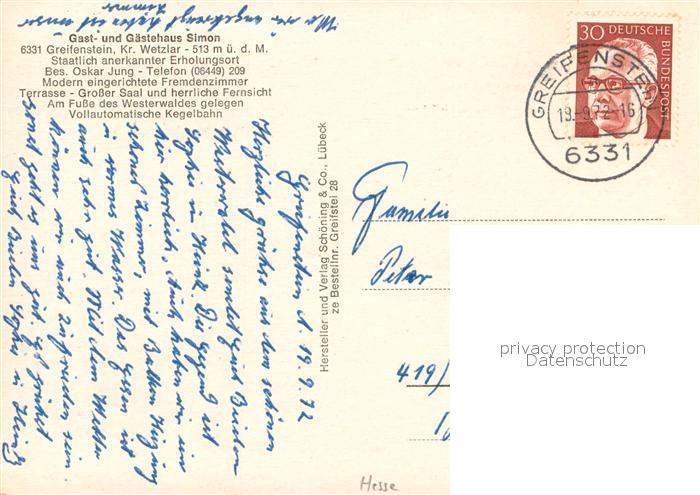 Gast- und Gästehaus Simon
6331 Greifenstein, Kr. Wetzlar - 513 m ü. d. M.
Staatlich anerkannter Erholungsort
Bes. Oskar Jung - Telefon (06449) 209
Modern eingerichtete Fremdenzimmer
Terrasse - Großer Saal und herrliche Fernsicht
Am Fuße des Westerwaldes gelegen
Vollautomatische Kegelbahn
Greifenstein d. 19.9.72
Herzliche Grüße aus dem schönen
Westerwald sendet Euch
Sophie u. Heinz. Die Gegend ist
hier herrlich. Auch haben wir ein
schönes Zimmer, mit Balkon Heizung
u. warm Wasser. Das Essen ist
auch sehr gut. Mit dem Wetter
können wir auch zufrieden sein.
sonst geht es uns gut. Es grüßet
Euch Sophie u. Heinz
Hersteller und Verlag Schöning & Co., Lübeck
ze Bestellnr. Greifstei 28
30 DEUTSCHE
BUNDESPOST
GREIFENSTEIN
19.-9.72-16
6331
Familie
Peter
419/
privacy protection
Datenschutz
Hesse